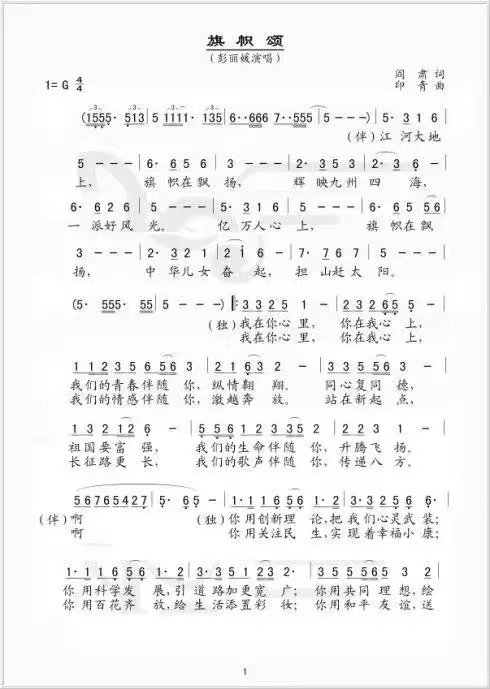 旗帜颂
(彭丽媛演唱)
1=G 4/4
阎肃词
印青曲
(1555· 513 5 1111· 135 6··666 7··555 5---) 5· 3 1 6
(伴)江 河大地
5 --- 6· 5 6 5 3 --- 2· 3 2 1 2· 3 6 -
上, 旗 帜在飘 扬, 辉 映九州 四 海,
6· 6 2 6 5 --- 5· 3 1 6 5 --- 6· 5 5 6
一 派好风 光。 亿 万人心 上, 旗 帜在飘
3 --- 2· 3 2 1 2· i 6 - 7· 7 6 7 5 - - -
扬, 中 华儿女 奋 起, 担 山赶太 阳。
(5· 555· 555· 55 5 - - -) 3 3 2 5 1 - 2 3 2 6 5 -
(独)我在你心 里, 你在我心 上,
我在你心 里, 你在我心 上,
我们的青春伴随 你, 纵情翱 翔。 同心复同 德,
我们的情感伴随 你, 激越奔 放。 站在新起 点,
1 3 2 1 2 6 -
祖国要富 强, 我们的生命伴随 你, 升腾飞 扬。
长征路更 长, 我们的歌声伴随 你, 传递八 方。
5 6 7 6 5 4 2 7 5· 6 5 -
(伴)啊 (独) 你用创新理 论,把我们心灵武 装;
啊 你用关注民 生,实现着幸福小 康;
你 用科学发 展,引道路加更宽 广; 你用共同 理想,绘
你 用百花齐 放,给生活添置彩 妆; 你用和平 友谊,送
1